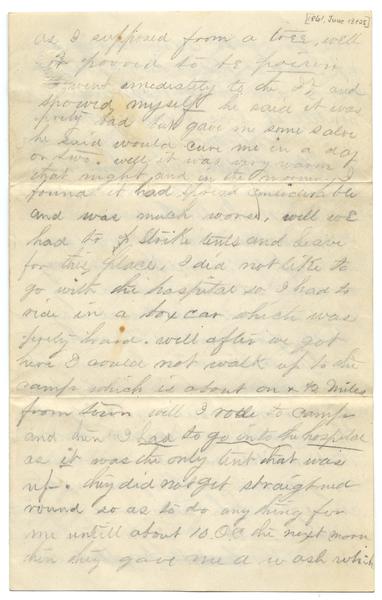 [1861, June 13 +25]
as I supposed from a tree, well
it proved to be poison
I went emediatly to the Dr, and
showed myself he said it was
prity bad but gave me some salve
he said would cure me in a day
or two. well it was very warm
that night and in the morning I
found it had spread considerable
and was much worse, well we
had to strike tents and leave
for this place, I did not like to
go with the hospital so I had to
ride in a box car which was
prity hard. well after we got
here I could not walk up to the
camp which is about on & ½ miles
from town well I rode to camp
and then I had to go onto the hospital
as it was the only tent that was
up. they did not get straightned
round so as to do any thing for
me untill about 10.OC the next morn
then they gave me a wash which